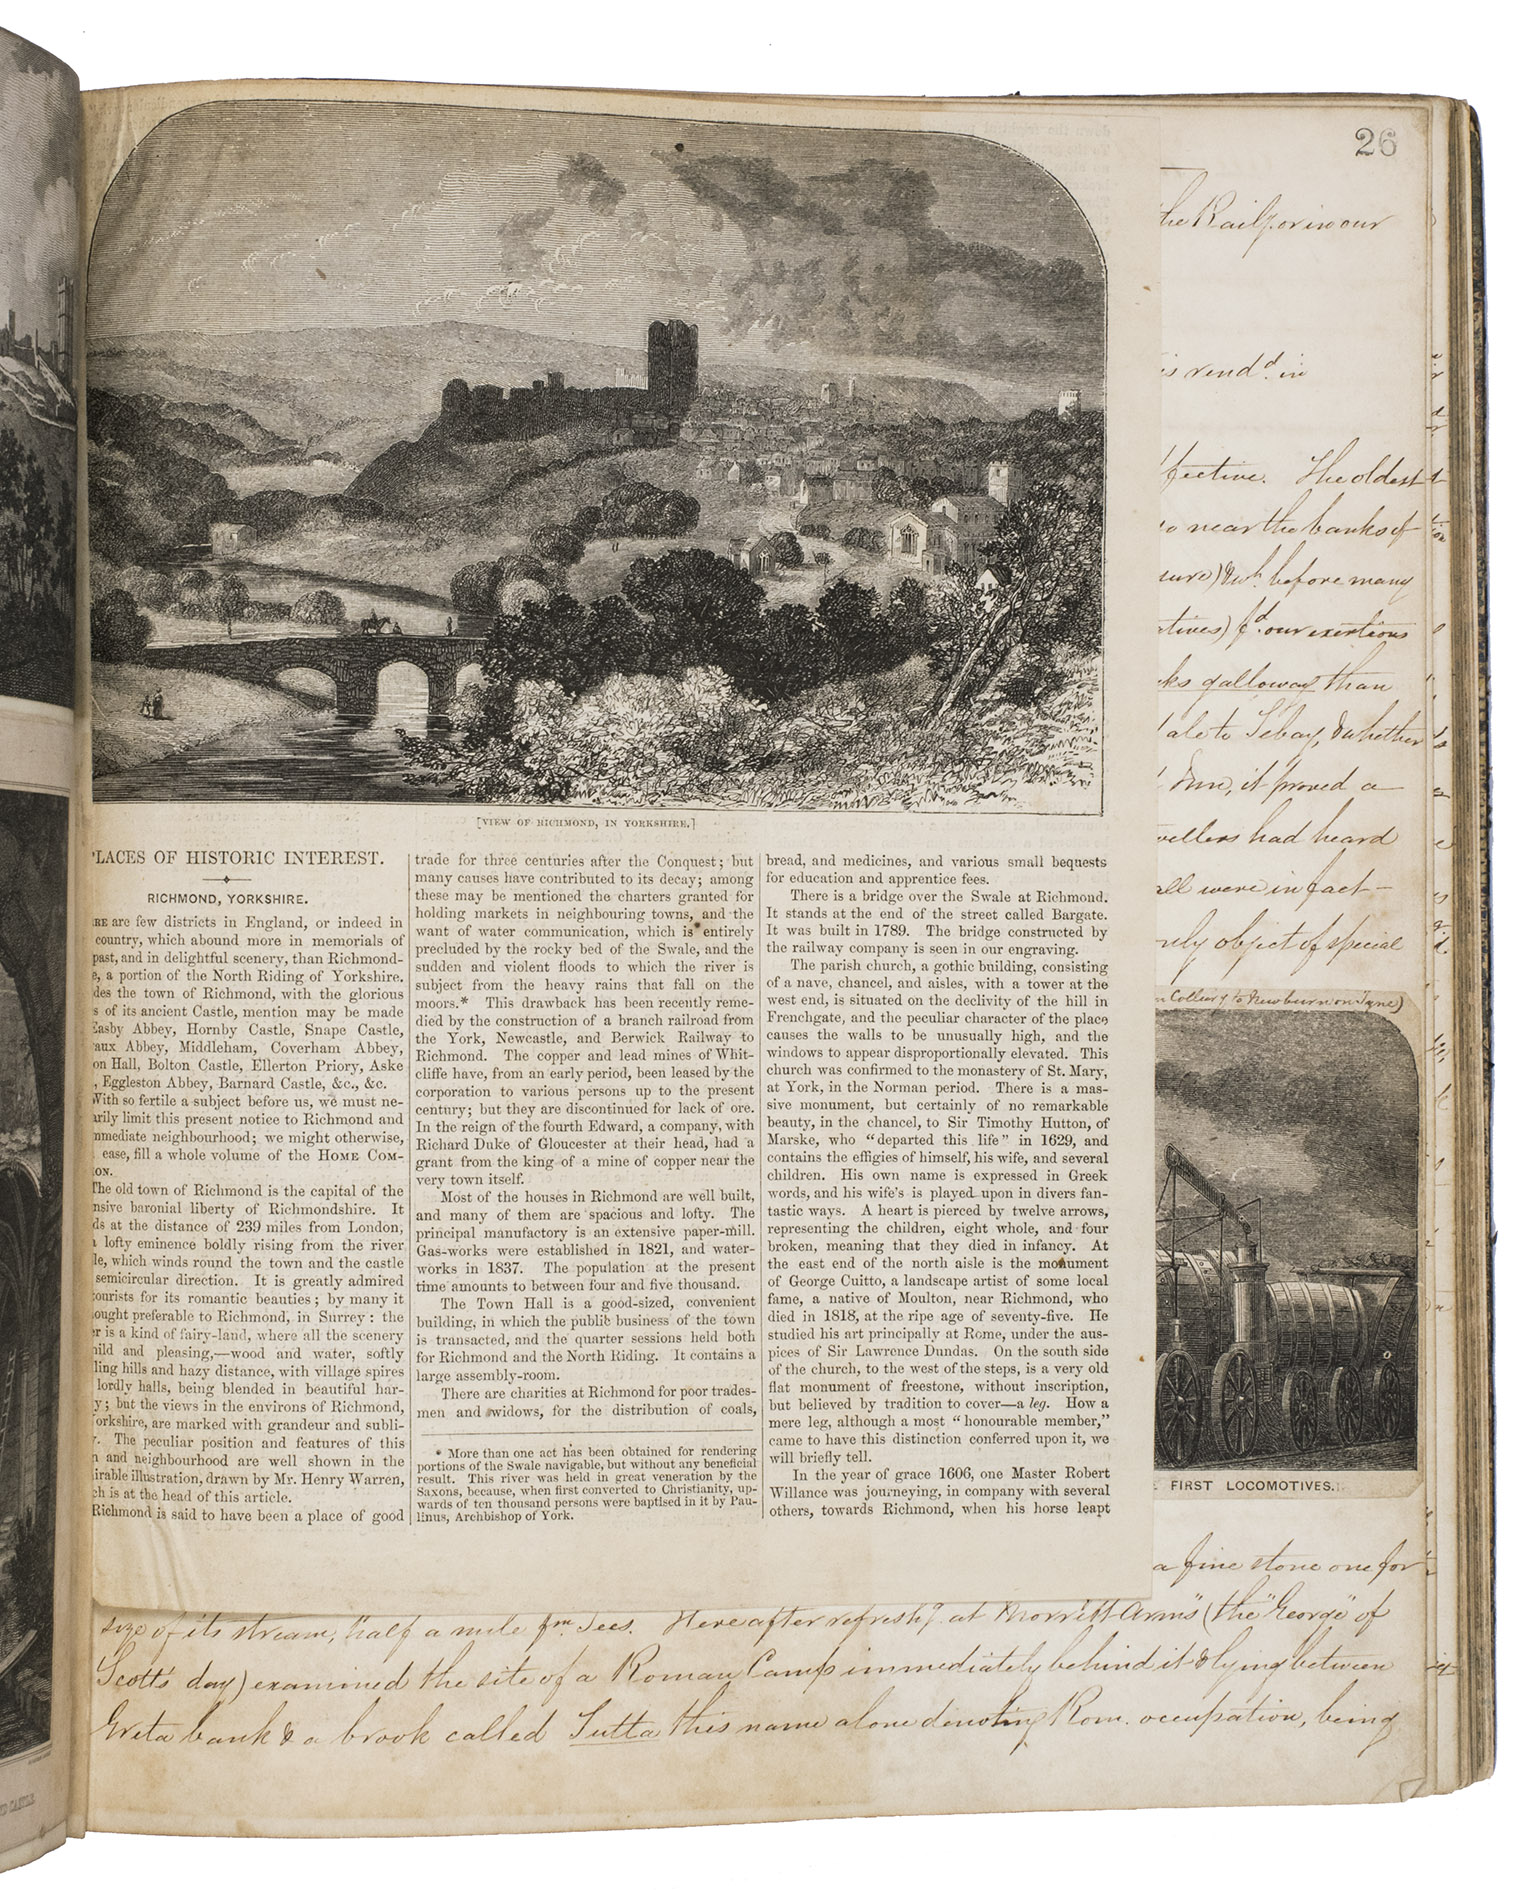 26
the Railpor in our
is rend.d in
ffective. The oldest
near the banks of
before many
atives) f.d our exertions
cks galloway than
dale to Tebay, & whether
Inn, it proved a
vellers had heard
all were in fact –
rely object of special
n Colliery to Newburn on Tyne)
[VIEW OF RICHMOND, IN YORKSHIRE.]
LACES OF HISTORIC INTEREST.
RICHMOND, YORKSHIRE.
ERE are few districts in England, or indeed in
country, which abound more in memorials of
past, and in delightful scenery, than Richmond-
e, a portion of the North Riding of Yorkshire.
des the town of Richmond, with the glorious
s of its ancient Castle, mention may be made
Easby Abbey, Hornby Castle, Snape Castle,
aux Abbey, Middleham, Coverham Abbey,
on Hall, Bolton Castle, Ellerton Priory, Aske
, Eggleston Abbey, Barnard Castle, &c., &c.
With so fertile a subject before us, we must ne-
arily limit this present notice to Richmond and
mmediate neighbourhood; we might otherwise,
ease, fill a whole volume of the HOME COM-
ION.
The old town of Richmond is the capital of the
nsive baronial liberty of Richmondshire. It
ds at the distance of 239 miles from London,
a lofty eminence boldly rising from the river
le, which winds round the town and the castle
semicircular direction. It is greatly admired
tourists for its romantic beauties; by many it
ought preferable to Richmond, in Surrey: the
er is a kind of fairy-land, where all the scenery
mild and pleasing,—wood and water, softly
ling hills and hazy distance, with village spires
lordly halls, being blended in beautiful har-
y; but the views in the environs of Richmond,
Yorkshire, are marked with grandeur and subli-
y. The peculiar position and features of this
n and neighbourhood are well shown in the
irable illustration, drawn by Mr. Henry Warren,
ch is at the head of this article.
Richmond is said to have been a place of good
trade for three centuries after the Conquest; but
many causes have contributed to its decay; among
these may be mentioned the charters granted for
holding markets in neighbouring towns, and the
want of water communication, which is entirely
precluded by the rocky bed of the Swale, and the
sudden and violent floods to which the river is
subject from the heavy rains that fall on the
moors.* This drawback has been recently reme-
died by the construction of a branch railroad from
the York, Newcastle, and Berwick Railway to
Richmond. The copper and lead mines of Whit-
cliffe have, from an early period, been leased by the
corporation to various persons up to the present
century; but they are discontinued for lack of ore.
In the reign of the fourth Edward, a company, with
Richard Duke of Gloucester at their head, had a
grant from the king of a mine of copper near the
very town itself.
Most of the houses in Richmond are well built,
and many of them are spacious and lofty. The
principal manufactory is an extensive paper-mill.
Gas-works were established in 1821, and water-
works in 1837. The population at the present
time amounts to between four and five thousand.
The Town Hall is a good-sized, convenient
building, in which the public business of the town
is transacted, and the quarter sessions held both
for Richmond and the North Riding. It contains a
large assembly-room.
There are charities at Richmond for poor trades-
men and widows, for the distribution of coals,
* More than one act has been obtained for rendering
portions of the Swale navigable, but without any beneficial
result. This river was held in great veneration by the
Saxons, because, when first converted to Christianity, up-
wards of ten thousand persons were baptised in it by Pau-
linus, Archbishop of York.
bread, and medicines, and various small bequests
for education and apprentice fees.
There is a bridge over the Swale at Richmond.
It stands at the end of the street called Bargate.
It was built in 1789. The bridge constructed by
the railway company is seen in our engraving.
The parish church, a gothic building, consisting
of a nave, chancel, and aisles, with a tower at the
west end, is situated on the declivity of the hill in
Frenchgate, and the peculiar character of the place
causes the walls to be unusually high, and the
windows to appear disproportionally elevated. This
church was confirmed to the monastery of St. Mary,
at York, in the Norman period. There is a mas-
sive monument, but certainly of no remarkable
beauty, in the chancel, to Sir Timothy Hutton, of
Marske, who "departed this life" in 1629, and
contains the effigies of himself, his wife, and several
children. His own name is expressed in Greek
words, and his wife's is played upon in divers fan-
tastic ways. A heart is pierced by twelve arrows,
representing the children, eight whole, and four
broken, meaning that they died in infancy. At
the east end of the north aisle is the monument
of George Cuitto, a landscape artist of some local
fame, a native of Moulton, near Richmond, who
died in 1818, at the ripe age of seventy-five. He
studied his art principally at Rome, under the aus-
pices of Sir Lawrence Dundas. On the south side
of the church, to the west of the steps, is a very old
flat monument of freestone, without inscription,
but believed by tradition to cover—a leg. How a
mere leg, although a most "honourable member,"
came to have this distinction conferred upon it, we
will briefly tell.
In the year of grace 1606, one Master Robert
Willance was journeying, in company with several
others, towards Richmond, when his horse leapt
FIRST LOCOMOTIVES.
a fine stone one for
size of its stream, half a mile fm. Tees. Here after refreshg. at "Morritt Arms" (the "George" of
Scott's day) examined the site of a Roman Camp immediately behind it & lying between
Greta bank & a brook called Tutta this name alone denoting Rom. occupation, being